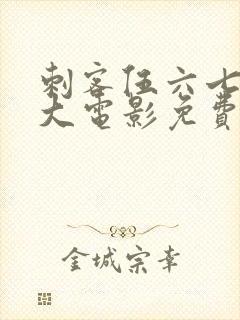 刺客伍六七
大电影免费
金城宗幸